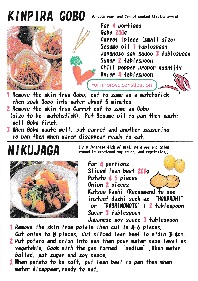 KINPIRA GOBO
For 4 portions
Gobo 200g
Carrot 1piece (small size)
Sesame oil 1 tablespoon
Japanese soy sauce 3 tablespoon
Sugar 2 tablespoon
Chili pepper powder modestly
Onion 4 tablespoon
1 Remove the skin from Gobo, cut to same as a matchstick
then soak Gobo into water about 5 minutes
2 Remove the skin from Carrot cut to same as Gobo
(size to be matchstick). Put Sesame oil to pan then saute
well Gobo first.
3 When Gobo saute well, put carrot and another seasoning
to pan then when water disappear ready to eat.
NIKUJAGA
For 4 portions
Sliced lean beef
Potato 4 5 pieces
Onion 2 pieces
Katsuo Dashi (Recommend to use
instant dashi such as "HONDASHI"
2 tablespoon
Sugar 3 tablespoon
Japanese soy sauce 3 tablespoon
1 Remove the skin from potato then cut in 4-6 pieces,
2 Put potato and onion into pan then pour water same level as
vegetable. Cook with the gas turned medium. When water
boiled, put sugar and soy sauce.
3 When potato to be soft, put lean beef to pan then when
water disappear, ready to eat.